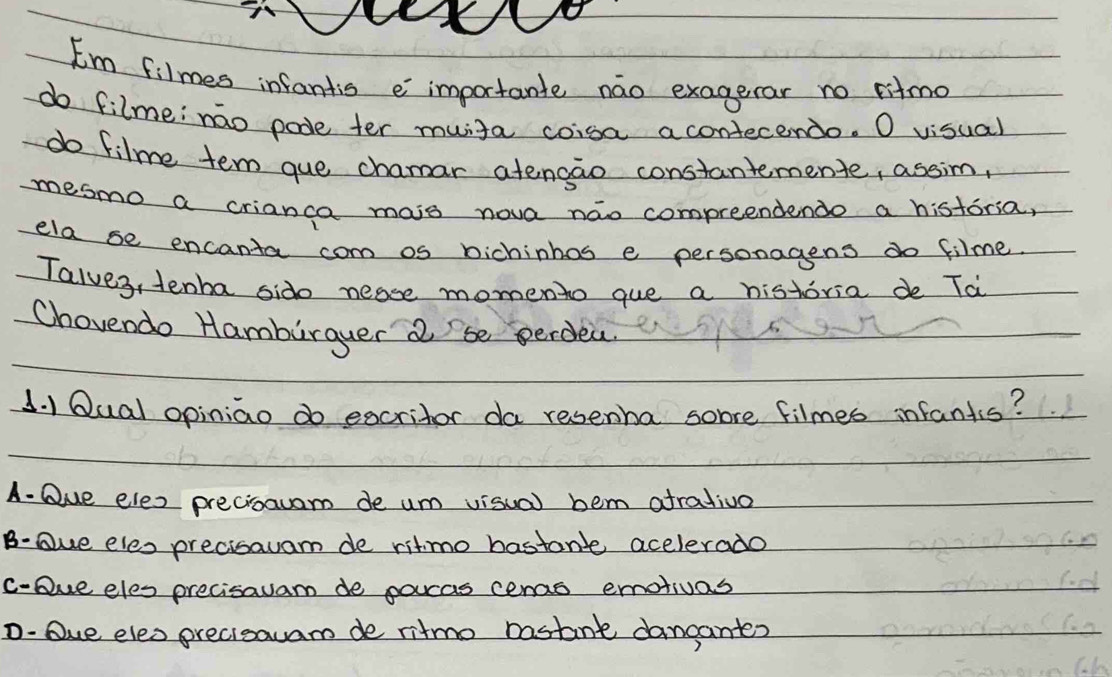 Texto
Em filmes infantis é importante não exagerar no ritmo
do filme: não pode ter muita coisa acontecendo. O visual
do filme tem que chamar atenção constantemente, assim,
mesmo a criança mais nova não compreendendo a história,
ela se encanta com os bichinhos e personagens do filme.
Talvez, tenha sido nesse momento que a história de Tá
Chovendo Hambúrguer 2 se perdeu.
1.) Qual opinião do escritor da resenha sobre filmes infantis?
A- Que eles precisavam de um visual bem atrativo
B- Que eles precisavam de ritmo bastante acelerado
C- Que eles precisavam de poucas cenas emotivas
D- Que eles precisavam de ritmo bastante dançantes